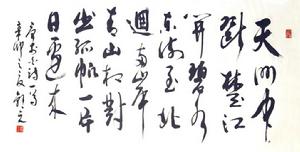 天門中
斷楚江
開碧水
東流至北
迴兩岸
青山相對
出孤帆一片
日邊來
唐李白詩一首
辛卯之夏